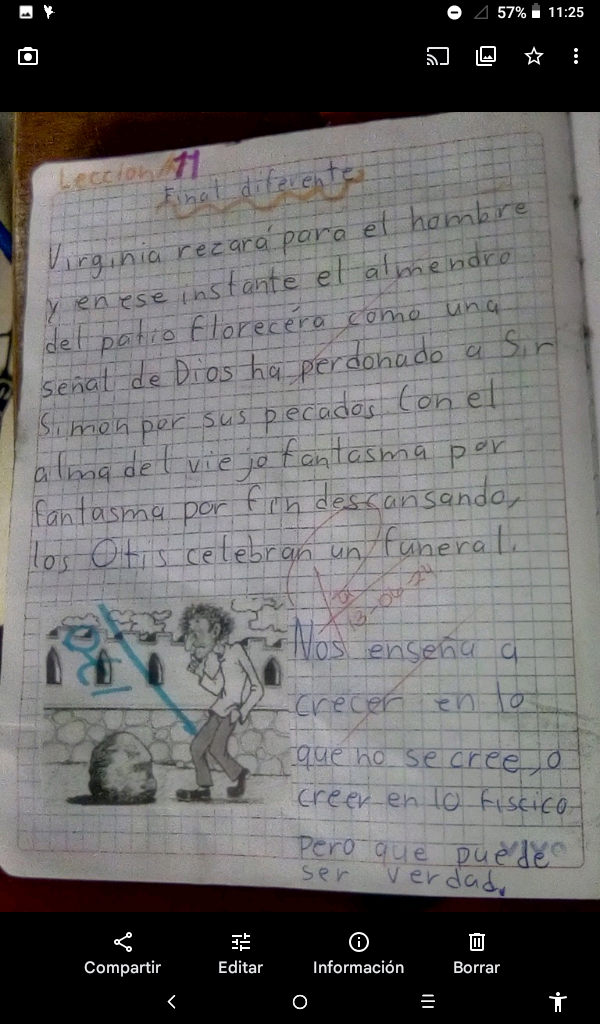 57% 11:25
Leccion 11
Final diferente
Virginia rezará para el hombre
y en ese instante el almendro
del patio florecéra como una
señal de Dios ha perdonado a Sir
Simon por sus pecados Con el
alma del viejo fantasma por
fantasma por fin descansando,
los Otis celebran un funeral.
Nos enseña a
crecer en lo
que no se cree, o
creer en lo fiscico
pero que puede
ser verdad.
Compartir Editar Información Borrar